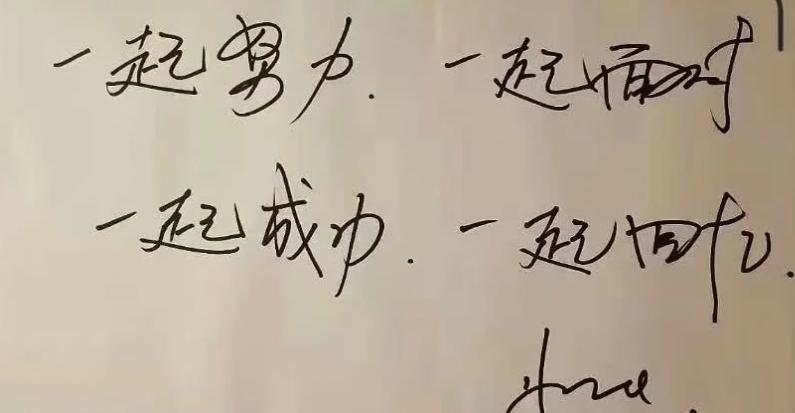 一起努力. 一起面对
一起成功. 一起回忆.